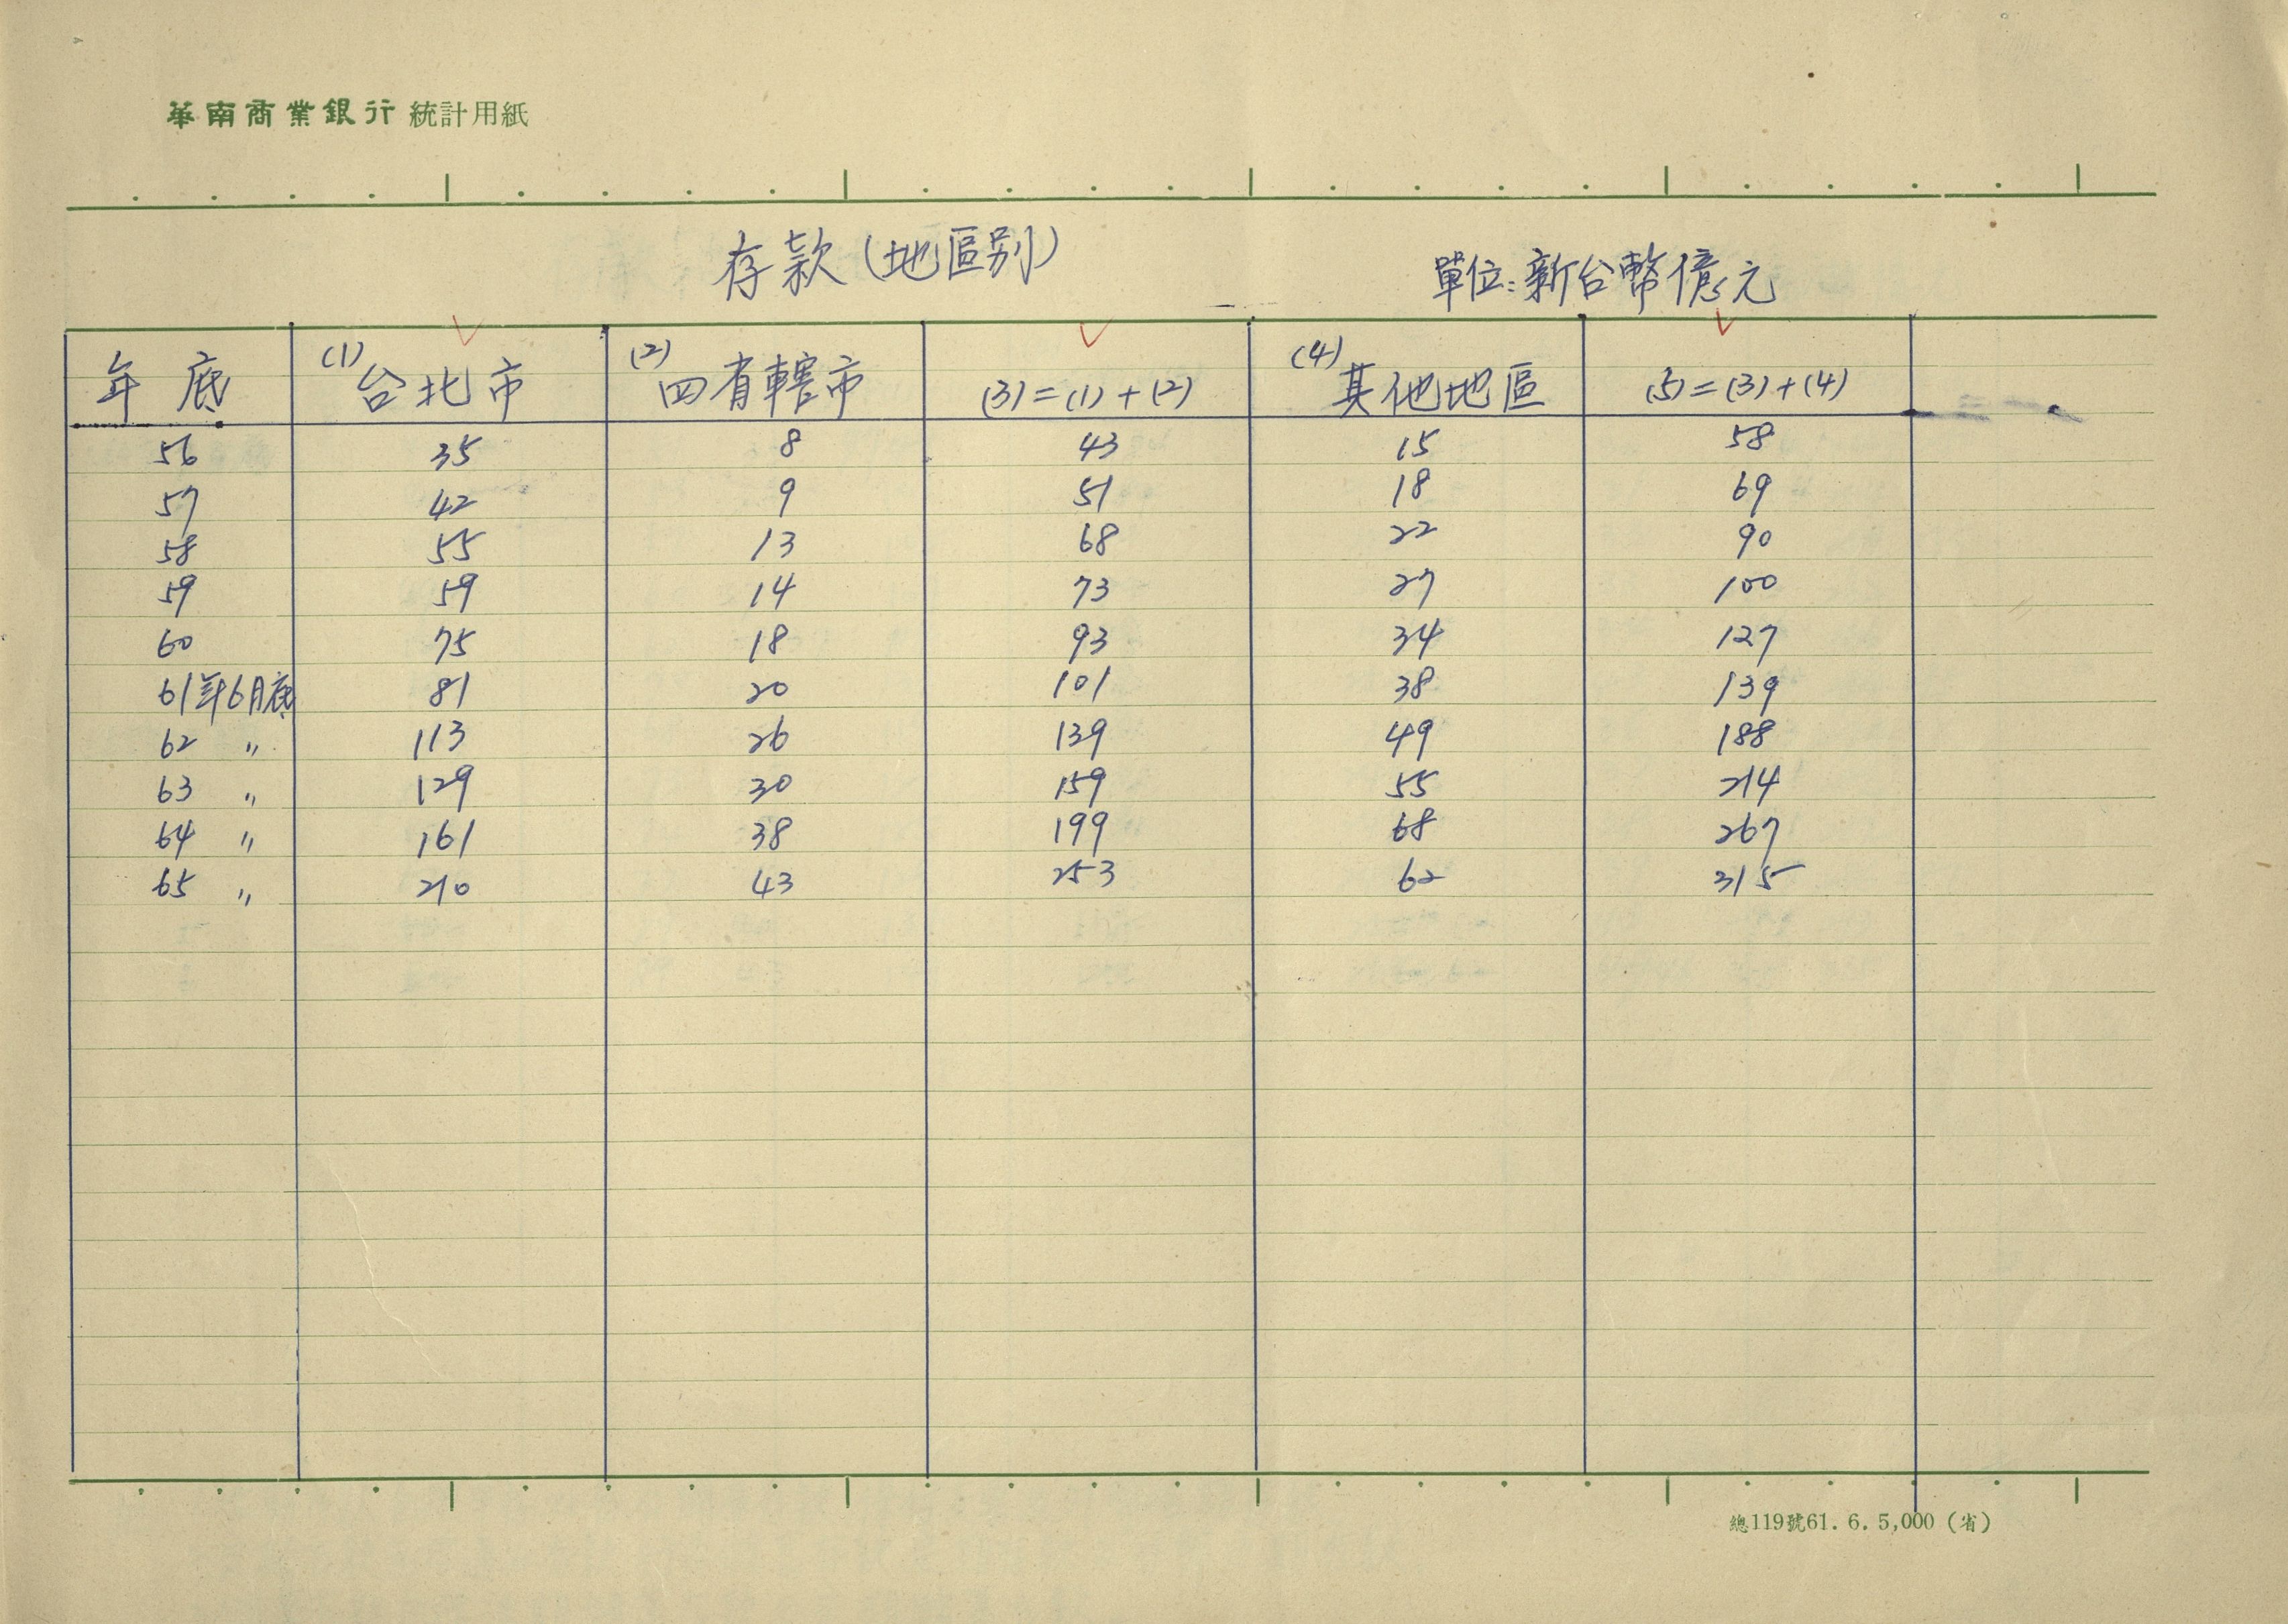 華南商業銀行 統計用紙
存款(地區別) 單位:新台幣億元
年底 (1)台北市 (2)四省轄市 (3)=(1)+(2) (4)其他地區 (5)=(3)+(4)
56 35 8 43 15 58
57 42 9 51 18 69
58 55 13 68 22 90
59 59 14 73 27 100
60 75 18 93 34 127
61年6月底 81 20 101 38 139
62 〃 113 26 139 49 188
63 〃 129 30 159 55 214
64 〃 161 38 199 68 267
65 〃 210 43 253 62 315
總119號61. 6. 5,000 (省)